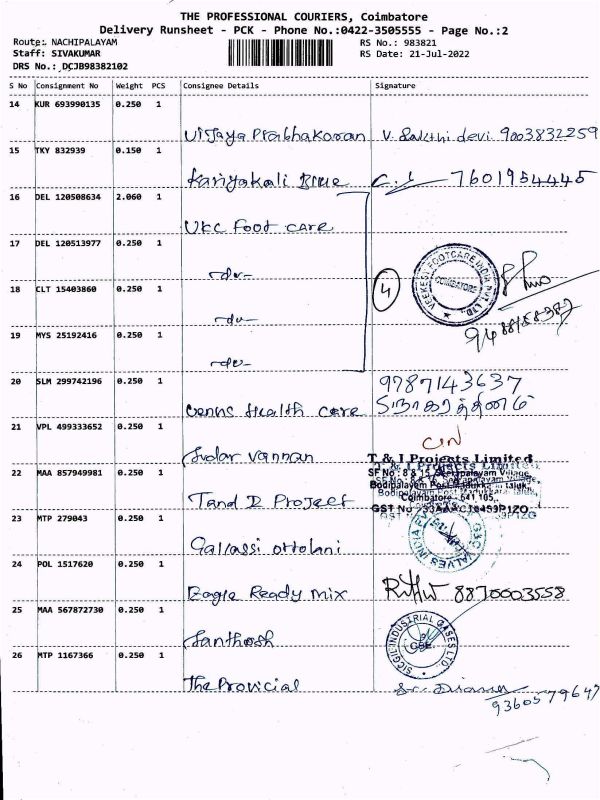 THE PROFESSIONAL COURIERS, Coimbatore
Delivery Runsheet - PCK - Phone No.:0422-3505555 - Page No.:2
Route: NACHIPALAYAM
RS No.: 983821
Staff: SIVAKUMAR
RS Date: 21-Jul-2022
DRS No.: DCJB98382102
S No Consignment No Weight PCS Consignee Details Signature
14 KUR 693990135 0.250 1
Vijaya Prabhakaran V. Sakthi devi 9003832259
15 TKY 832939 0.150 1
Kariyakali 7601954445
16 DEL 120508634 2.060 1
VKC Foot care
17 DEL 120513977 0.250 1
-do-
VEEKESY FOOTCARE INDIA PVT. LTD.
COIMBATORE
18 CLT 15403860 0.250 1
4
-do-
19 MYS 25192416 0.250 1
-do-
20 SLM 299742196 0.250 1
9787143637
Health care
21 VPL 499333652 0.250 1
Vannan
T & I Projects Limited
SF No : 8 & 15, Seerapalayam Village,
22 MAA 857949981 0.250 1
Bodipalayam Post, Madukkarai Taluk,
Coimbatore - 641 105.
T and I Project
23 MTP 279043 0.250 1
Gallassi Ottolani
24 POL 1517620 0.250 1
Eagle Ready Mix 8870003558
25 MAA 567872730 0.250 1
SICGIL INDUSTRIAL GASES LTD.
Santhosh
26 MTP 1167366 0.250 1
The Provicial Sr. Diana
9360579647